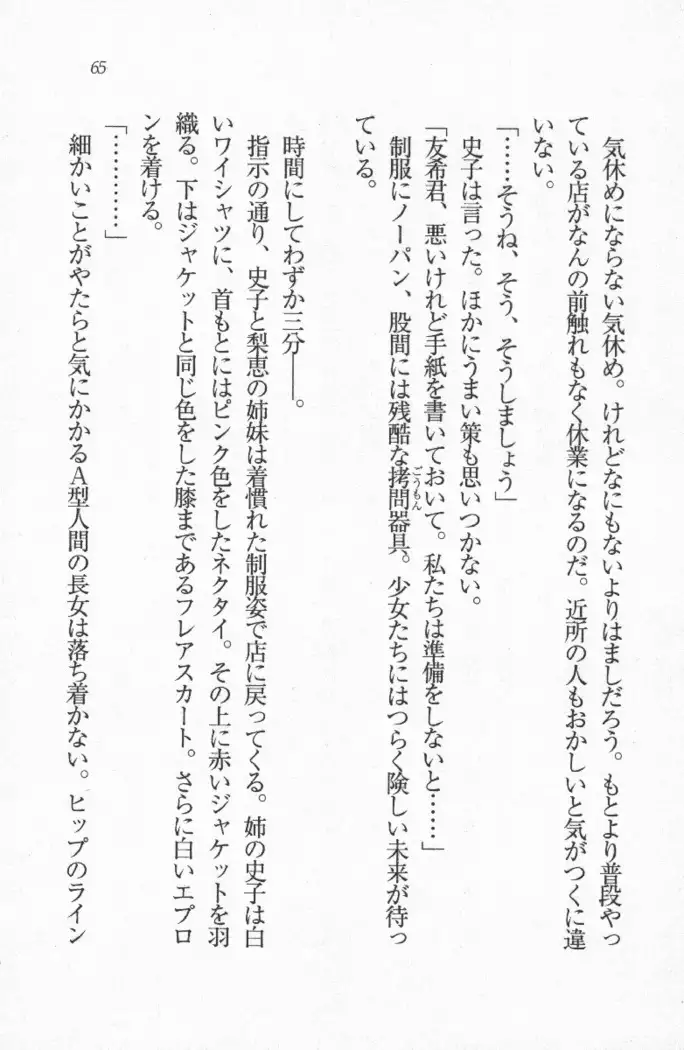 65
気休めにならない気休め。けれどなにもないよりはましだろう。もとより普段やっ
ている店がなんの前触れもなく休業になるのだ。近所の人もおかしいと気がつくに違
いない。
「……そうね、そう、そうしましょう」
史子は言った。ほかにうまい策も思いつかない。
「友希君、悪いけれど手紙を書いておいて。私たちは準備をしないと……」
制服にノーパン、股間には残酷な拷問器具。少女たちにはつらく険しい未来が待っ
ごうもん
ている。
時間にしてわずか三分――。
指示の通り、史子と梨恵の姉妹は着慣れた制服姿で店に戻ってくる。姉の史子は白
いワイシャツに、首もとにはピンク色をしたネクタイ。その上に赤いジャケットを羽
織る。下はジャケットと同じ色をした膝まであるフレアスカート。さらに白いエプロ
ンを着ける。
「…………」
細かいことがやたらと気にかかるA型人間の長女は落ち着かない。ヒップのライン